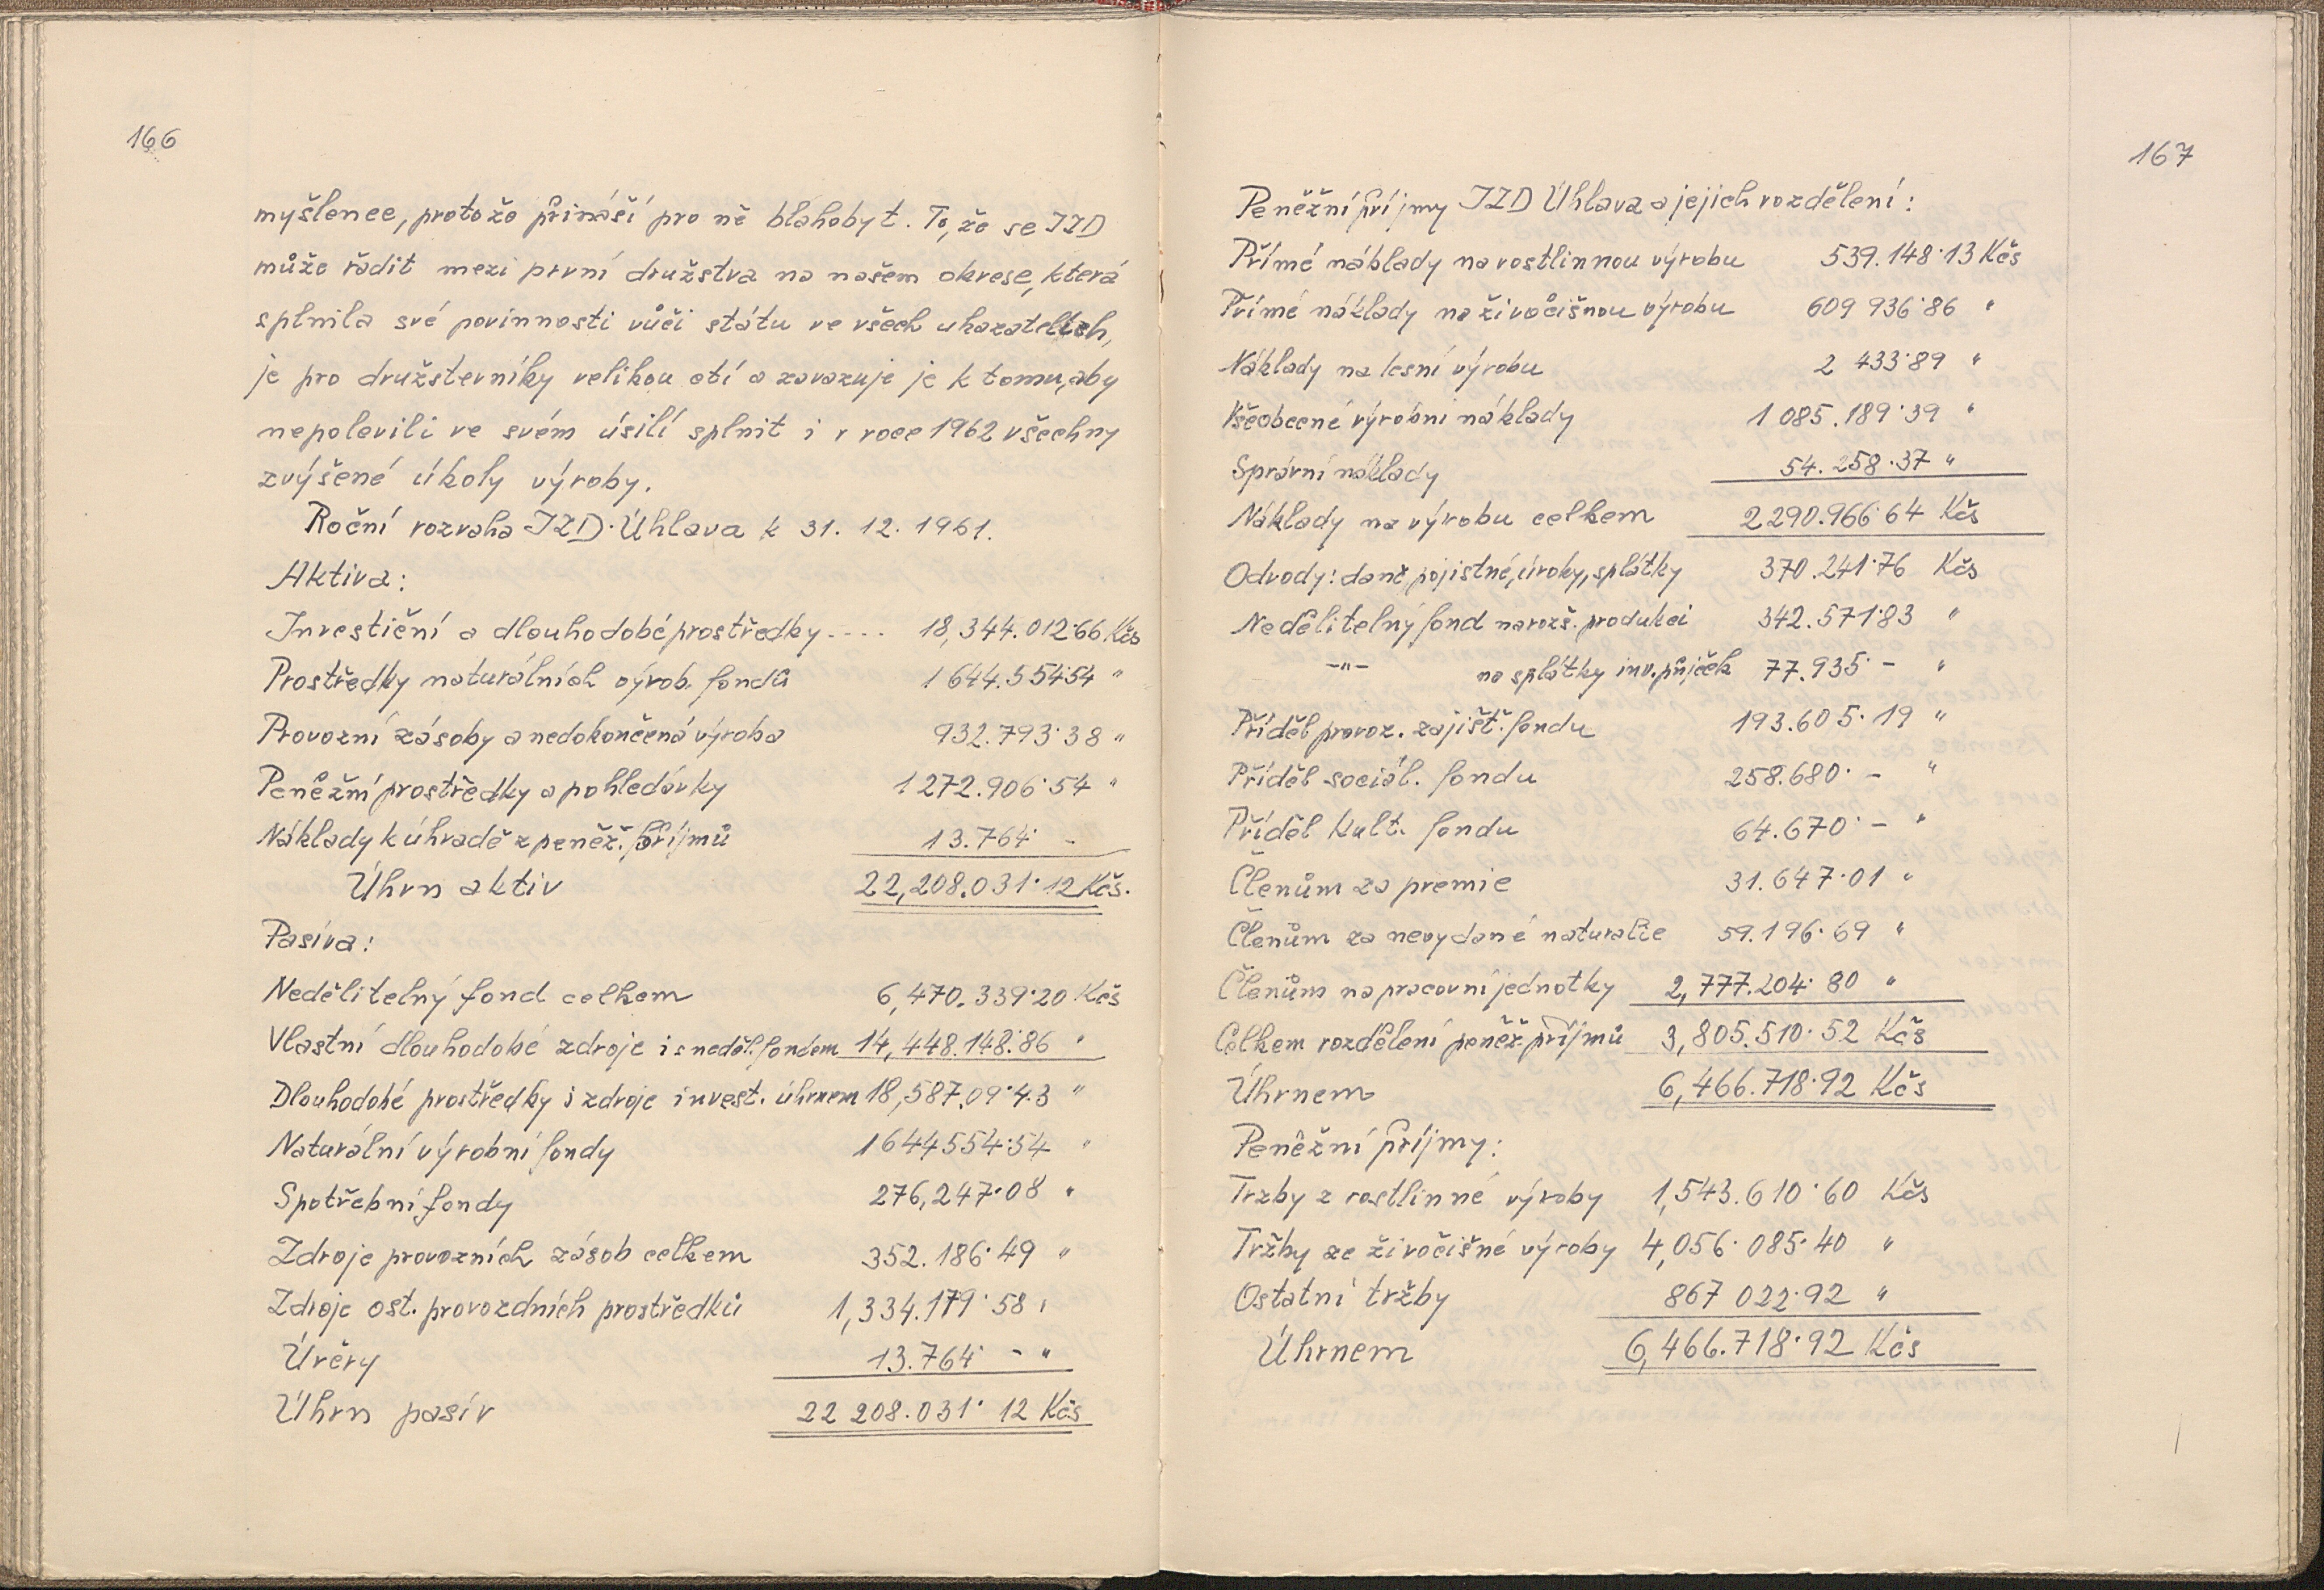 166
myšlence, protože přináší pro ně blahobyt. To, že se JZD
může řadit mezi první družstva na našem okrese, která
splnila své povinnosti vůči státu ve všech ukazatelích,
je pro družstevníky velikou ctí a zavazuje je k tomu, aby
nepolevili ve svém úsilí splnit i v roce 1962 všechny
zvýšené úkoly výroby.
Roční rozvaha JZD. Úhlava k 31. 12. 1961.
Aktiva:
Investiční a dlouhodobé prostředky.... 18,344.012·66 Kčs
Prostředky naturálních výrob. fondů 1644.554·54 "
Provozní zásoby a nedokončená výroba 932.793·38 "
Peněžní prostředky a pohledávky 1272.906·54 "
Náklady k úhradě z peněž. příjmů 13.764· -
Úhrn aktiv 22,208.031·12 Kčs.
Pasíva:
Nedělitelný fond celkem 6,470.339·20 Kčs
Vlastní dlouhodobé zdroje i s neděl. fondem 14,448.148·86 "
Dlouhodobé prostředky i zdroje invest. úhrnem 18,587.09·43 "
Naturální výrobní fondy 1644554·54 "
Spotřební fondy 276,247·08 "
Zdroje provozních zásob celkem 352.186·49 "
Zdroje ost. provozdních prostředků 1,334.179·58 "
Úvěry 13.764· - "
Úhrn pasív 22 208.031· 12 Kčs
167
Peněžní příjmy JZD Úhlava a jejich rozdělení:
Přímé náklady na rostlinnou výrobu 539.148·13 Kčs
Přímé náklady na živočišnou výrobu 609 936·86 "
Náklady na lesní výrobu 2 433·89 "
Všeobecné výrobní náklady 1 085.189·39 "
Správní náklady 54.258·37 "
Náklady na výrobu celkem 2290.966·64 Kčs
Odvody: daně, pojistné, úroky, splátky 370.241·76 Kčs
Nedělitelný fond na rozš. produkci 342.571·83 "
-"- na splátky inv. půjček 77.935· - "
Příděl provoz. zajišť. fondu 193.605·19 "
Příděl sociál. fondu 258.680· - "
Příděl kult. fondu 64.670· - "
Členům za premie 31.647·01 "
Členům za nevydané naturalie 59.196·69 "
Členům na pracovní jednotky 2,777.204·80 "
Celkem rozdělení peněž. příjmů 3,805.510·52 Kčs
Úhrnem 6,466.718·92 Kčs
Peněžní příjmy:
Trzby z rostlinné výroby 1,543.610·60 Kčs
Tržby ze živočišné výroby 4,056·085·40 "
Ostatní tržby 867 022·92 "
Úhrnem 6,466.718·92 Kčs